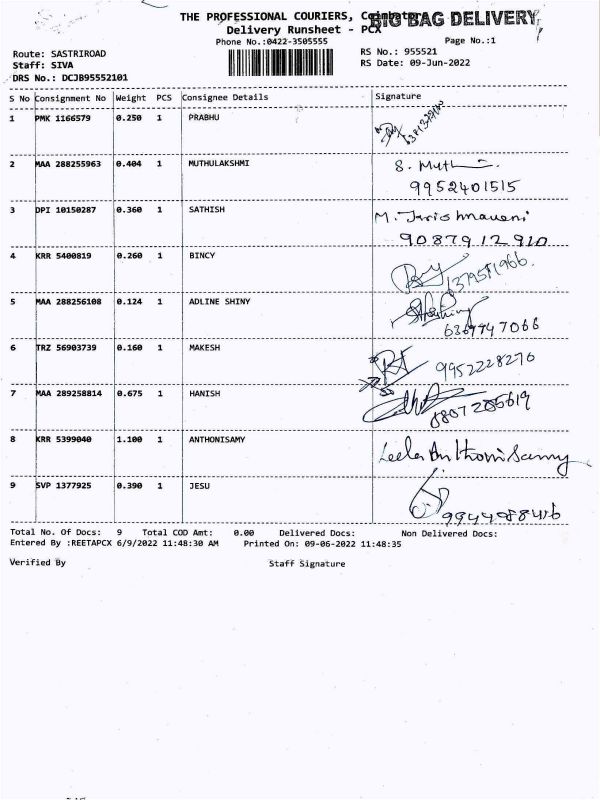 THE PROFESSIONAL COURIERS, Coimbatore
BIG BAG DELIVERY
Delivery Runsheet - PCX
Phone No.:0422-3505555
Page No.:1
Route: SASTRIROAD
RS No.: 955521
Staff: SIVA
RS Date: 09-Jun-2022
DRS No.: DCJB95552101
S No Consignment No Weight PCS Consignee Details Signature
1 PMK 1166579 0.250 1 PRABHU
2 MAA 288255963 0.404 1 MUTHULAKSHMI S. Muth
9952401515
3 DPI 10150287 0.360 1 SATHISH
90879 12 910
4 KRR 5400819 0.260 1 BINCY
5 MAA 288256108 0.124 1 ADLINE SHINY
6 TRZ 56903739 0.160 1 MAKESH 9952228276
7 MAA 289258814 0.675 1 HANISH
8 KRR 5399040 1.100 1 ANTHONISAMY Leela Anthonisamy
9 SVP 1377925 0.390 1 JESU
9944988416
Total No. Of Docs: 9 Total COD Amt: 0.00 Delivered Docs: Non Delivered Docs:
Entered By :REETAPCX 6/9/2022 11:48:30 AM Printed On: 09-06-2022 11:48:35
Verified By Staff Signature